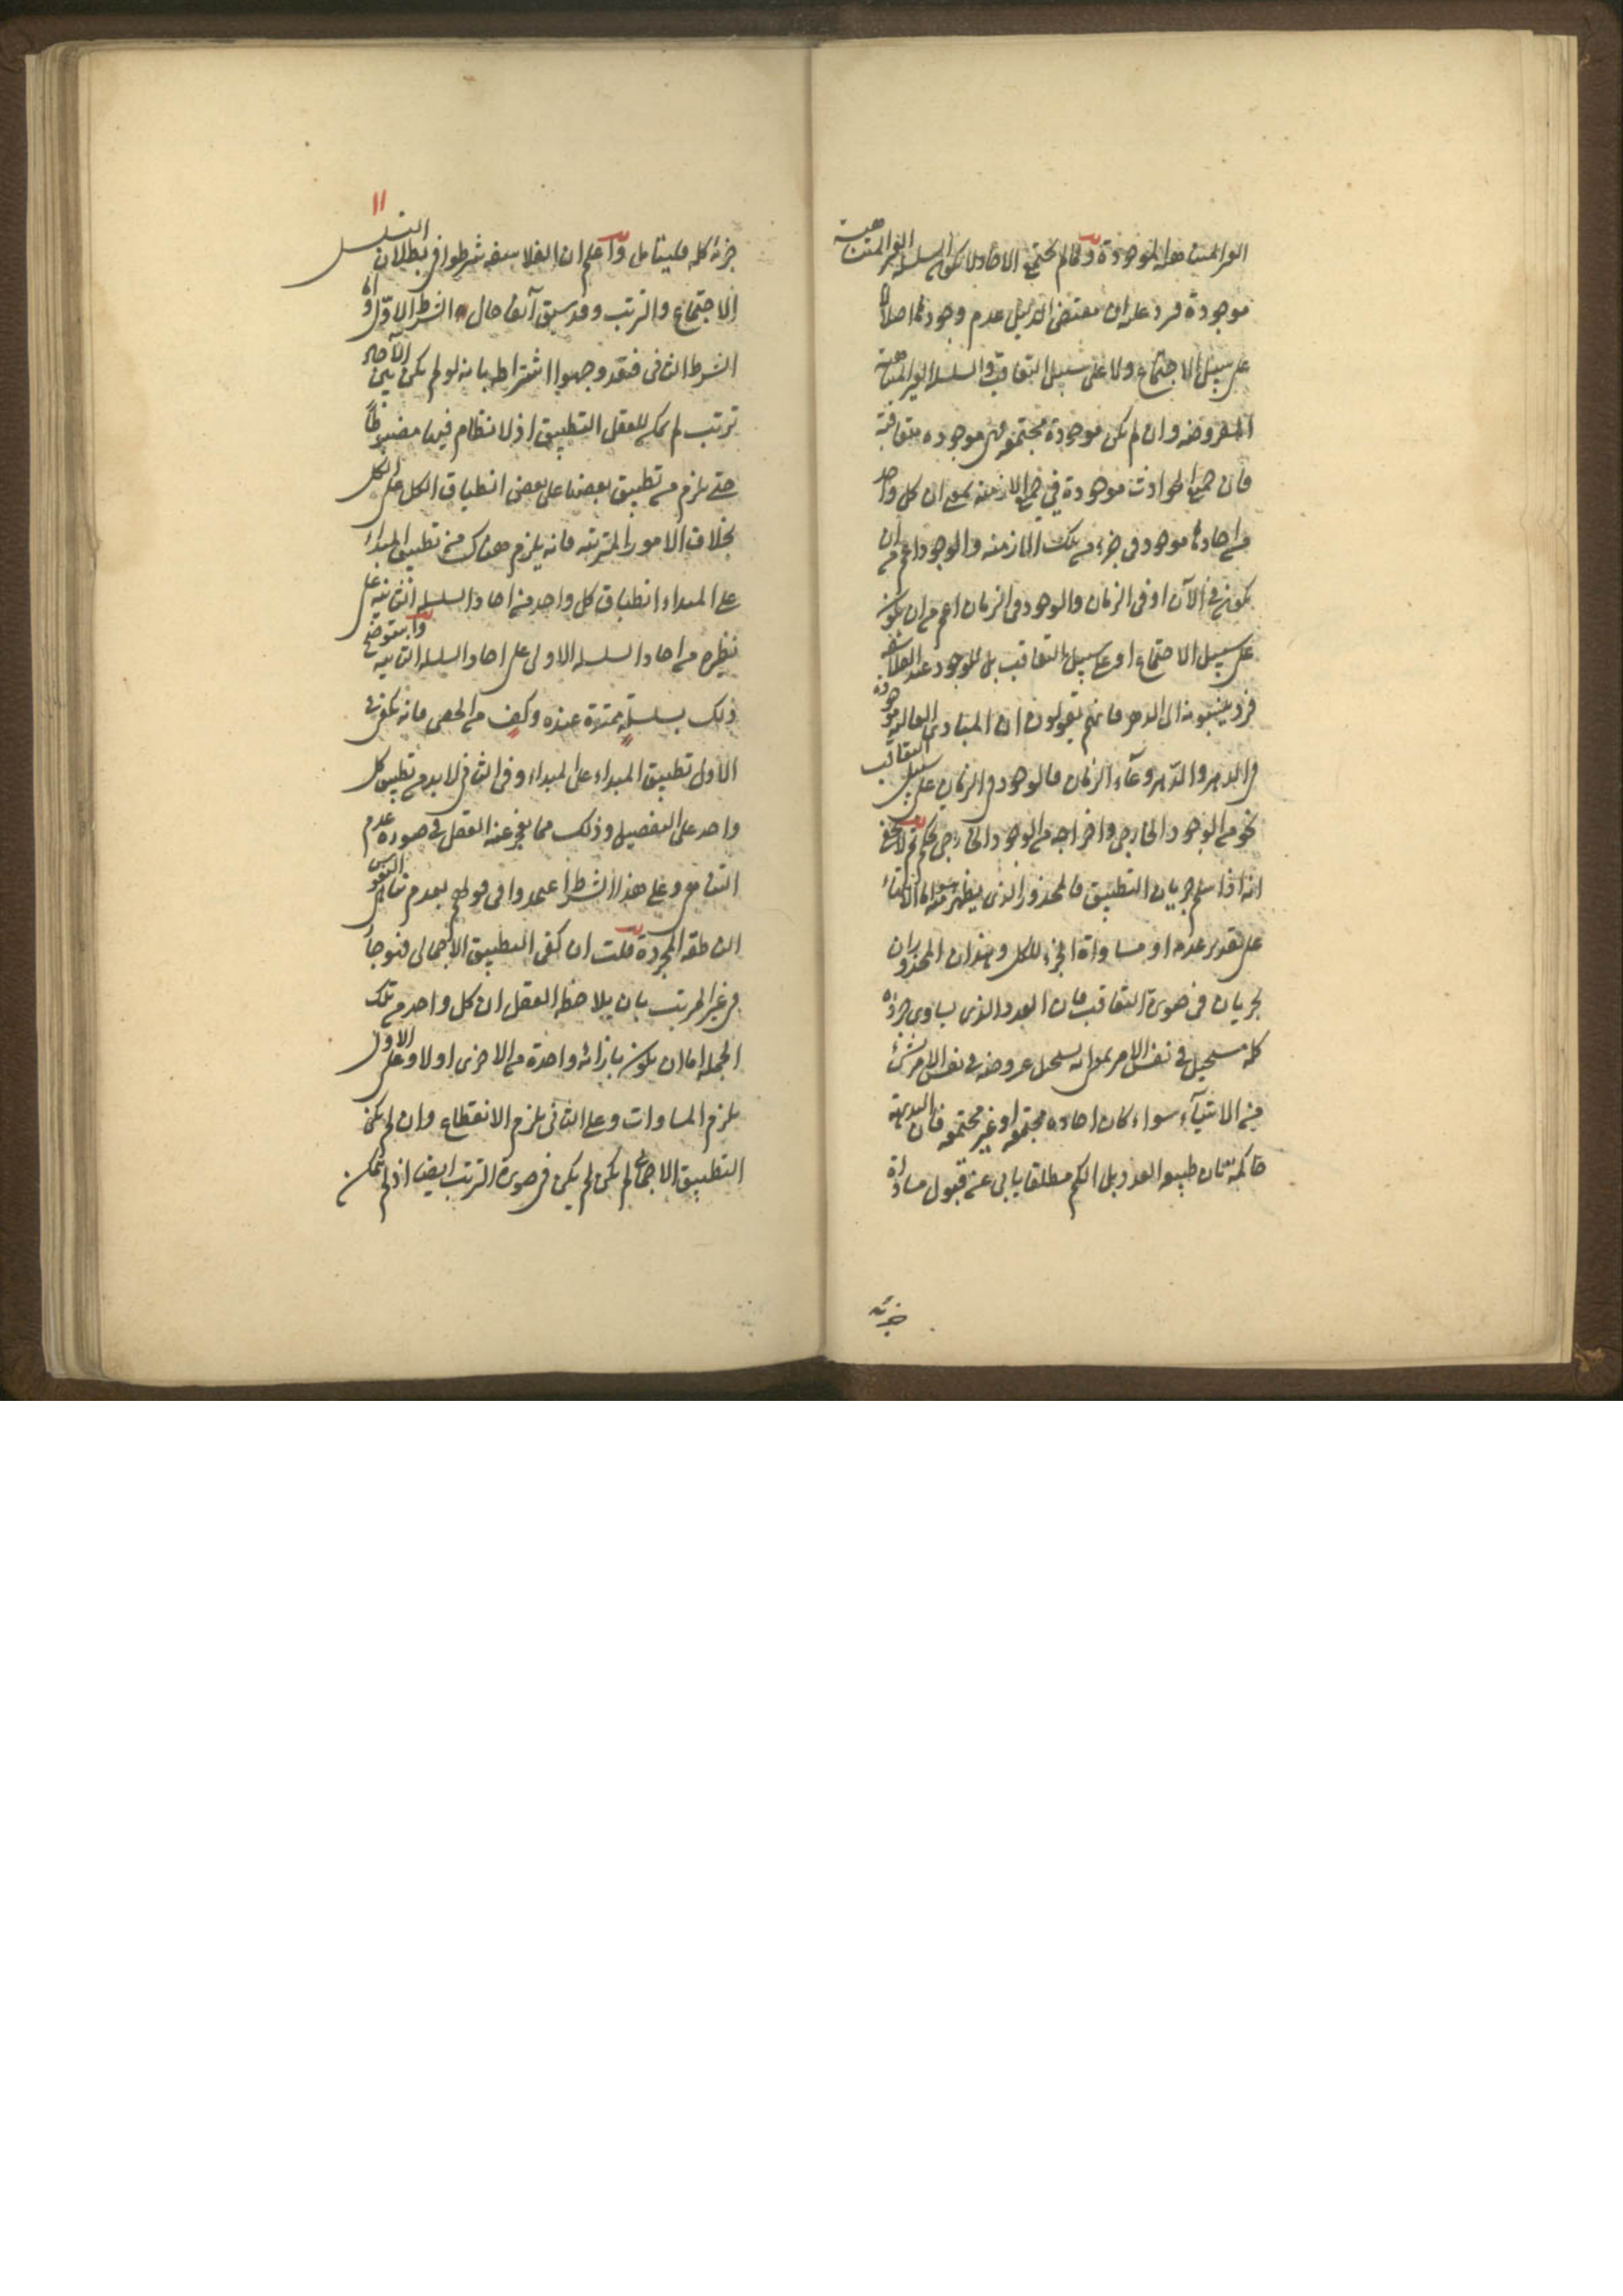 الغير المتناهية الموجودة وما لم يجتمع الآحاد لا يكون السلسلة الغير المتناهية
موجودة فرد عليه ان مقتضى الدليل عدم وجودها اصلا لا
على سبيل الاجتماع ولا على سبيل التعاقب والسلسلة الغير المتناهية
المفروضة وان لم تكن موجودة مجتمعة فهى موجودة متعاقبة
فان جميع الحوادث موجودة في جميع الازمنة بمعنى ان كل واحد
من احادها موجود في جزء من تلك الازمنة والوجود اعم من ان
يكون في الآن او في الزمان والوجود في الزمان اعم من ان يكون
على سبيل الاجتماع او على سبيل التعاقب بل للوجود عند الفلاسفة
فرد ينسبونه الى الدهر فانهم يقولون ان المبادى العالية موجودة
في الدهر والدهر وعاء الزمان فالوجود في الزمان على سبيل التعاقب
نحو من الوجود الخارجى واخراجه من الوجود الخارجى تحكم ثم لا يخفى
انه اذا سلم جريان التطبيق فالمحذور الذى يظهر منه اما الانتهاء
على تقدير عدمه او مساواة الجزء للكل وهذان المحذوران
يجريان في صورة التعاقب فان العدد الذى يساوى جزؤه
كله مستحيل في نفس الامر بمعنى انه يستحيل عروضه في نفس الامر لشئ
من الاشياء سواء كان احاده مجتمعة او غير مجتمعة فان البديهة
حاكمة بان طبيعة العدد بل الكم مطلقا يابى عن قبول مساواة
جزئه
١١
جزئه كله فليتامل واعلم ان الفلاسفة شرطوا في بطلان التسلسل
الاجتماع والترتب وقد سبق آنفا حال الشرط الاول واما
الشرط الثانى فقد وجهوا اشتراطه بانه لو لم يكن بين الآحاد
ترتب لم يمكن للعقل التطبيق اذ لا نظام فيها مضبوطا
حتى يلزم من تطبيق بعضها على بعض انطباق الكل على الكل
بخلاف الامور المترتبة فانه يلزم هناك من تطبيق المبداء
على المبداء انطباق كل واحد من احاد السلسلة الثانية على
نظيره من احاد السلسلة الاولى على احاد السلسلة الثانية واستوضح
ذلك بسلسلة ممتدة عنده وكف من الحصى فانه يكفى في
الاول تطبيق المبداء على المبداء وفي الثانى لا بد من تطبيق كل
واحد على التفصيل وذلك مما يعجز عنه العقل في صورة عدم
التناهى وعلى هذا الشرط اعتمدوا في قولهم بعدم تناهى النفوس
الناطقة المجردة قلت ان كفى التطبيق الاجمالى فهو جار
في غير المرتب بان يلاحظ العقل ان كل واحد من تلك
الجملة اما ان يكون بازائه واحدة من الاخرى اولا وعلى الاول
يلزم المساوات وعلى الثانى يلزم الانقطاع وان لم يكن
التطبيق الاجمالى لم يكن لم يكن في صورة الترتب ايضا اذ لم يتمكن